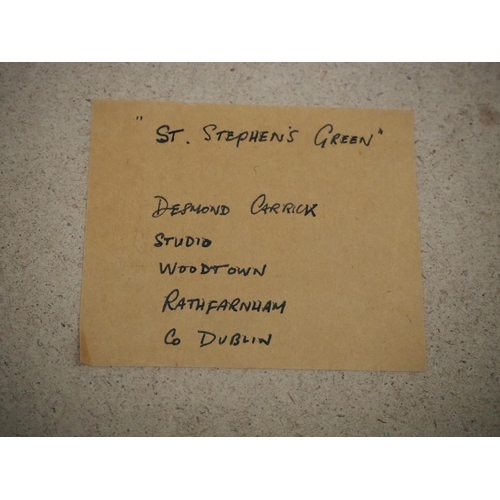 "St. Stephen's Green"
Desmond Carrick
Studio
Woodtown
Rathfarnham
Co Dublin